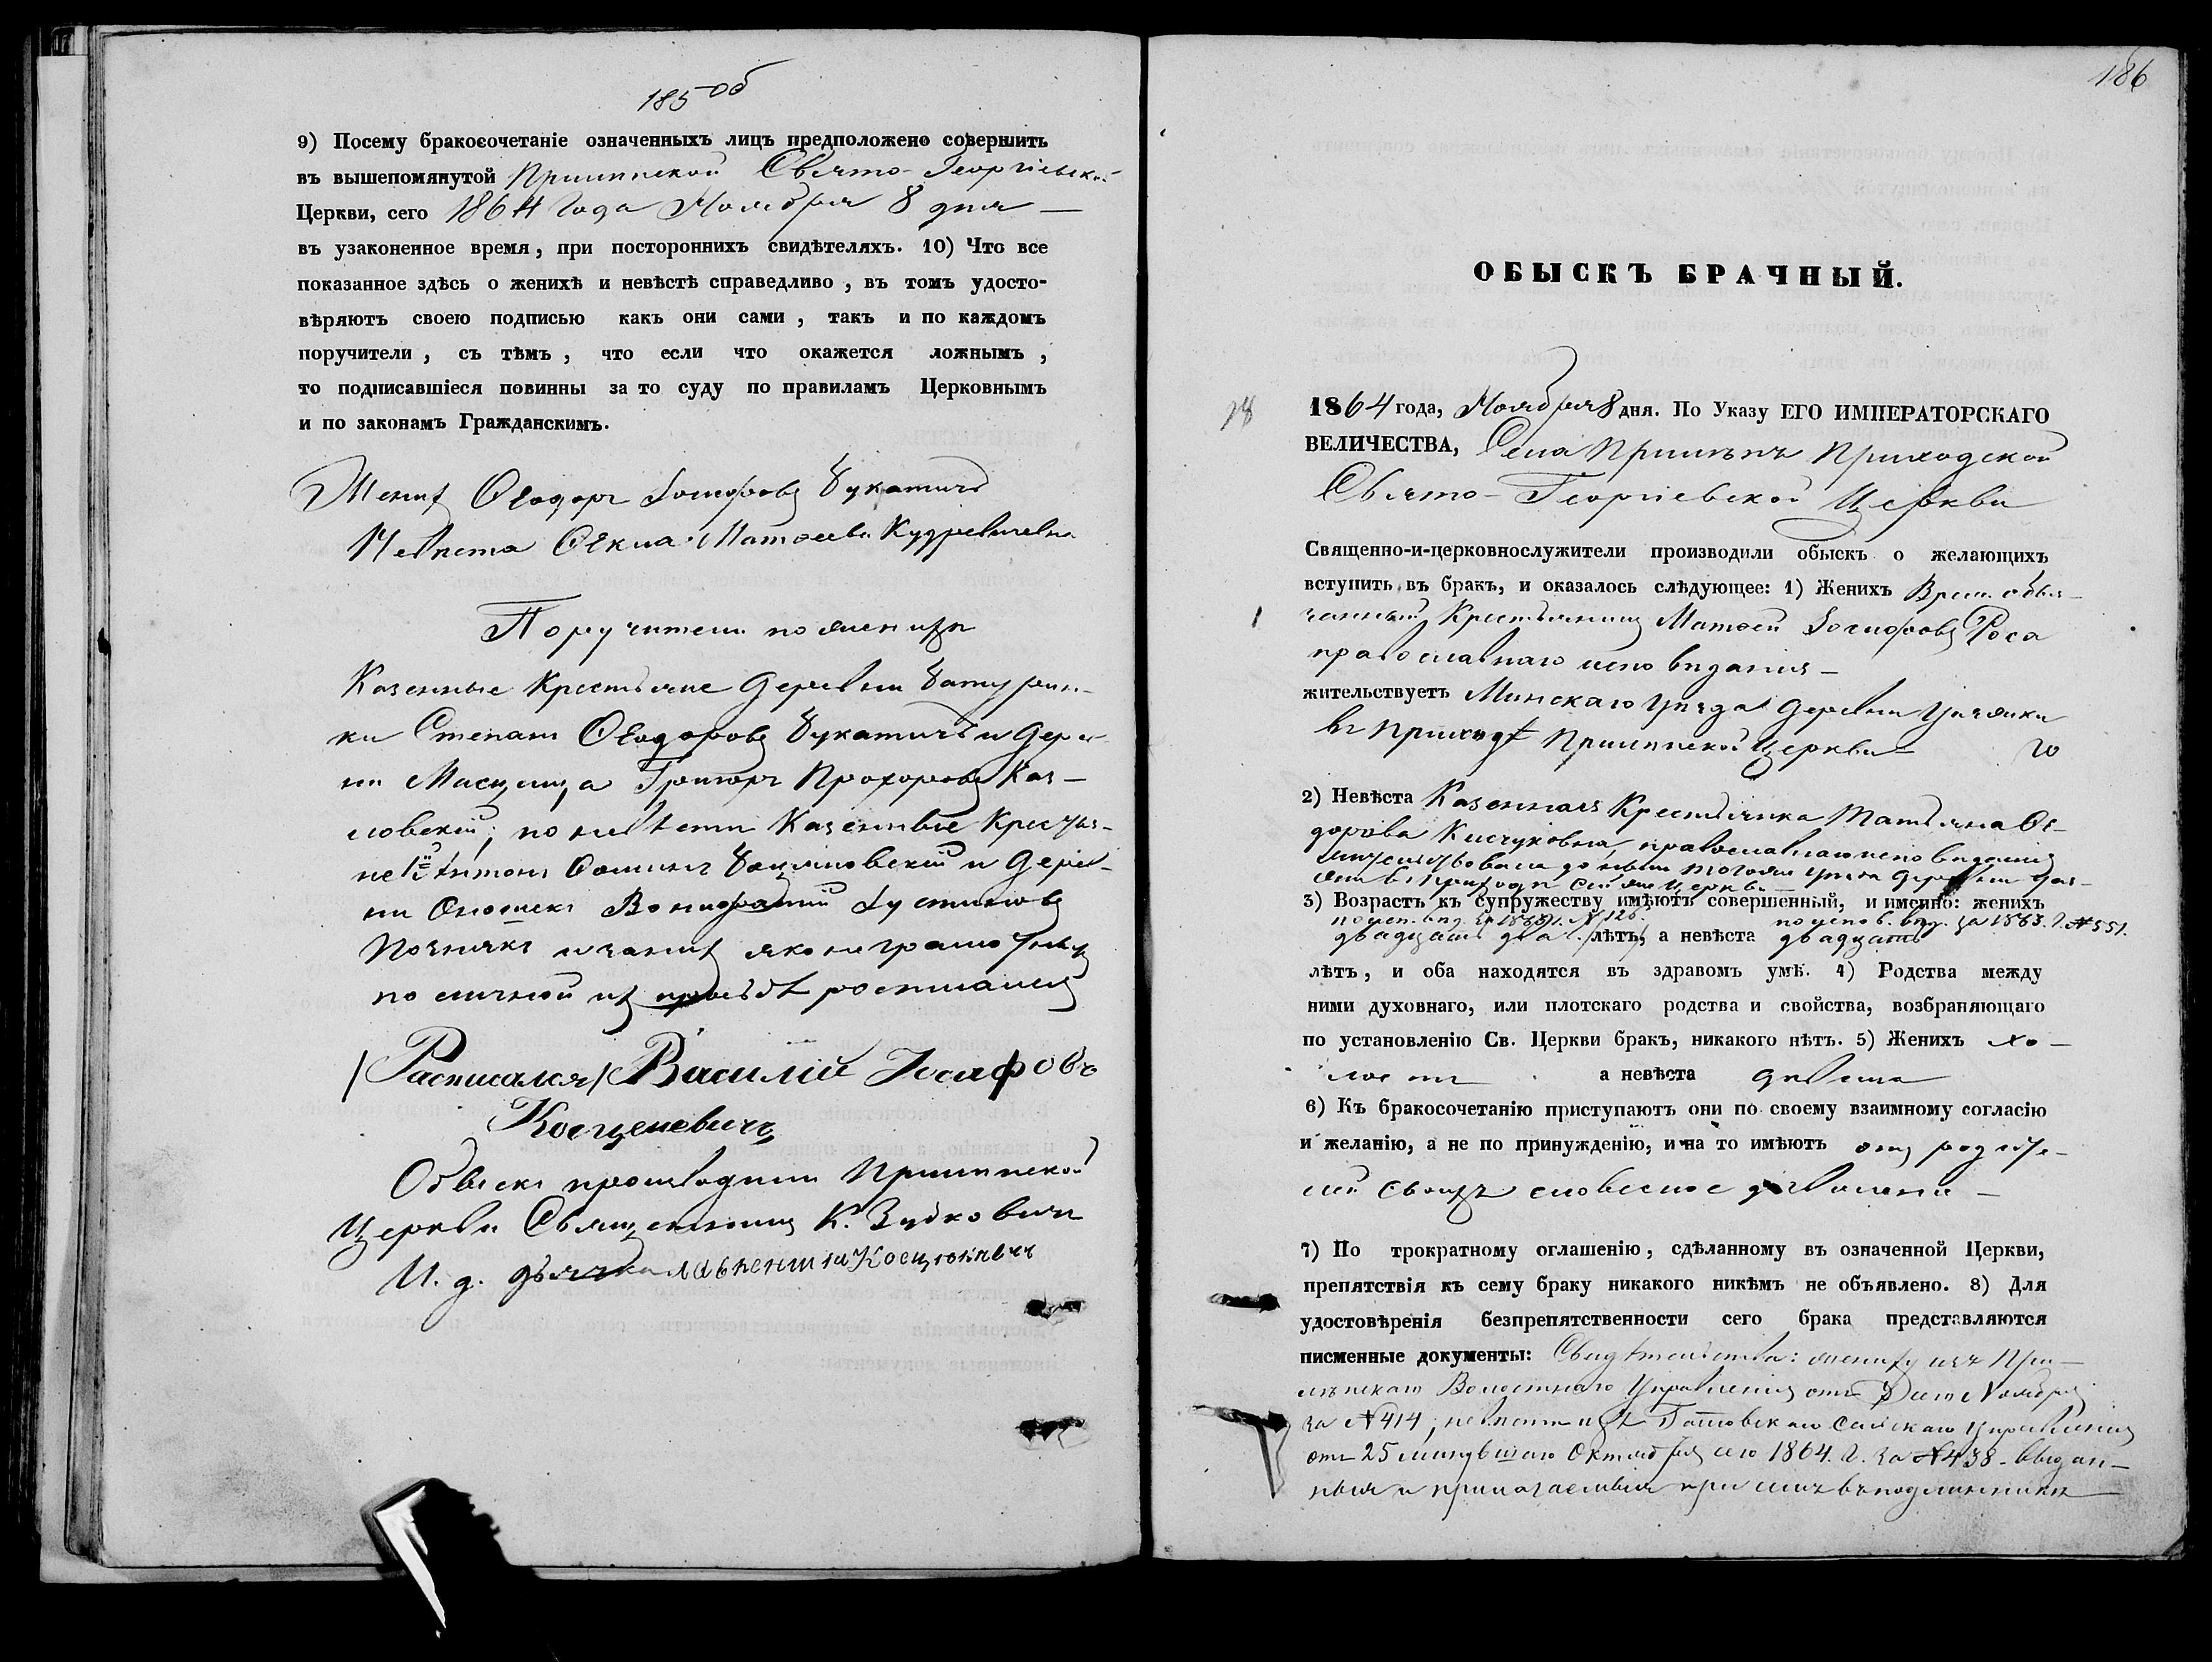 185 об
9) Посему бракосочетаніе означенныхъ лицъ предположено совершить
въ вышепомянутой Прилѣпской Свято-Георгіевской
Церкви, сего 1864 года Ноября 8 дня —
въ узаконенное время, при постороннихъ свидѣтеляхъ. 10) Что все
показанное здѣсь о женихѣ и невѣстѣ справедливо, въ томъ удосто-
вѣряютъ своею подписью какъ они сами, такъ и по каждомъ
поручители, съ тѣмъ, что если что окажется ложнымъ,
то подписавшіеся повинны за то суду по правиламъ Церковнымъ
и по законамъ Гражданскимъ.
Жених Ѳеодоръ Іосифовъ Букатичъ
Невѣста Ѳекла Матѳеева Кудревичевна
Поручители по женихѣ
Казенные Крестьяне Деревни
ки Степанъ Ѳеодоровъ Букатичъ и Дерев-
ни Григоръ Прохоровъ Каз-
ловскій; по невѣстѣ Казенные Крестья-
не Антонъ Ѳоминъ и Дерев-
ни Устиновъ
Почнякъ и за них яко неграмотных
по личной их прозьбѣ росписался
/Расписался/ Василій Іосафовъ
Косценевичъ
Обыскъ производили Прилѣпской
Церкви Священникъ К. Зубковичъ
И. д. дьячка
186
ОБЫСКЪ БРАЧНЫЙ.
18
1864 года, Ноября 8 дня. По Указу ЕГО ИМПЕРАТОРСКАГО
ВЕЛИЧЕСТВА, Села Прилѣпъ Приходской
Свято-Георгіевской Церкви
Священно-и-церковнослужители производили обыскъ о желающихъ
вступить въ бракъ, и оказалось слѣдующее: 1) Женихъ Врем. обяз-
занный Крестьянинъ Матѳей Іосифовъ Роса
православнаго исповѣданія —
жительствуетъ Минскаго Уѣзда Деревни
въ приходѣ Прилѣпской Церкви —
2) Невѣста Казенная Крестьянка Татьяна Ѳе-
дорова православнаго исповѣданія
жительствовала до нынѣ того же уѣзда Деревни
въ приходѣ сей же Церкви —
3) Возрастъ къ супружеству имѣютъ совершенный, и именно: женихъ
по исп. вѣд. за 1863 г. № 126. по испов. вѣд. за 1863. г. № 551.
двадцать два лѣтъ, а невѣста двадцать
лѣтъ, и оба находятся въ здравомъ умѣ. 4) Родства между
ними духовнаго, или плотскаго родства и свойства, возбраняющаго
по установленію Св. Церкви бракъ, никакого нѣтъ. 5) Женихъ хо-
лостъ а невѣста дѣвица
6) Къ бракосочетанію приступаютъ они по своему взаимному согласію
и желанію, а не по принужденію, и на то имѣютъ отъ родите-
лей своихъ словесное дозволеніе —
7) По трократному оглашенію, сдѣланному въ означенной Церкви,
препятствія къ сему браку никакого никѣмъ не объявлено. 8) Для
удостовѣренія безпрепятственности сего брака представляются
писменные документы: Свидѣтельства: жениху изъ При-
лѣпскаго Волостнаго Управленія отъ сего Ноября
за № 414; невѣсты изъ Гатовскаго Сельскаго Управленія
отъ 25 минувшаго Октября сего 1864. г. за № 438. выдан-
ныя и прилагаемыя при семъ въ подлинникѣ